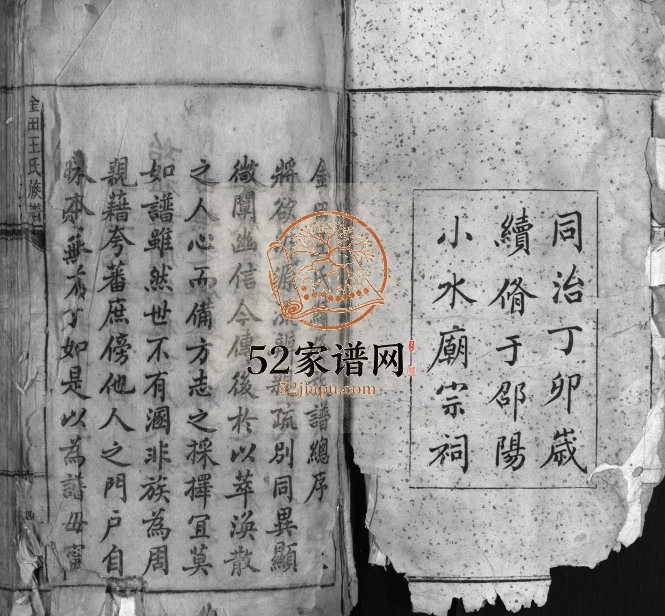 同治丁卯歲
續脩于邵陽
小水廟宗祠
金田王氏續 譜總序
將欲 源流 疏別同異顯
微闡幽信今傳後於以萃渙散
之人心而備方志之採擇宜莫
如譜雖然世不有溷非族為周
親藉夸蕃庶傍他人之門戶自
丁如是以為譜毋寧
金田王氏族譜
四
52家谱网
52jiapu.com